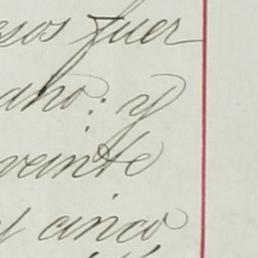 esos fuer
año: y
veinte
y cinco